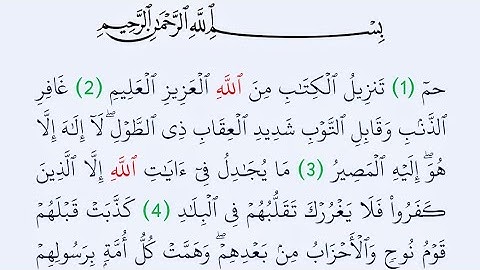 بِسْمِ اللَّهِ الرَّحْمَٰنِ الرَّحِيمِ
حمٓ (1) تَنزِيلُ ٱلْكِتَـٰبِ مِنَ ٱللَّهِ ٱلْعَزِيزِ ٱلْعَلِيمِ (2) غَافِرِ
ٱلذَّنۢبِ وَقَابِلِ ٱلتَّوْبِ شَدِيدِ ٱلْعِقَابِ ذِى ٱلطَّوْلِ ۖ لَآ إِلَـٰهَ إِلَّا
هُوَ ۖ إِلَيْهِ ٱلْمَصِيرُ (3) مَا يُجَـٰدِلُ فِىٓ ءَايَـٰتِ ٱللَّهِ إِلَّا ٱلَّذِينَ
كَفَرُوا۟ فَلَا يَغْرُرْكَ تَقَلُّبُهُمْ فِى ٱلْبِلَـٰدِ (4) كَذَّبَتْ قَبْلَهُمْ
قَوْمُ نُوحٍ وَٱلْأَحْزَابُ مِنۢ بَعْدِهِمْ ۖ وَهَمَّتْ كُلُّ أُمَّةٍۭ بِرَسُولِهِمْ